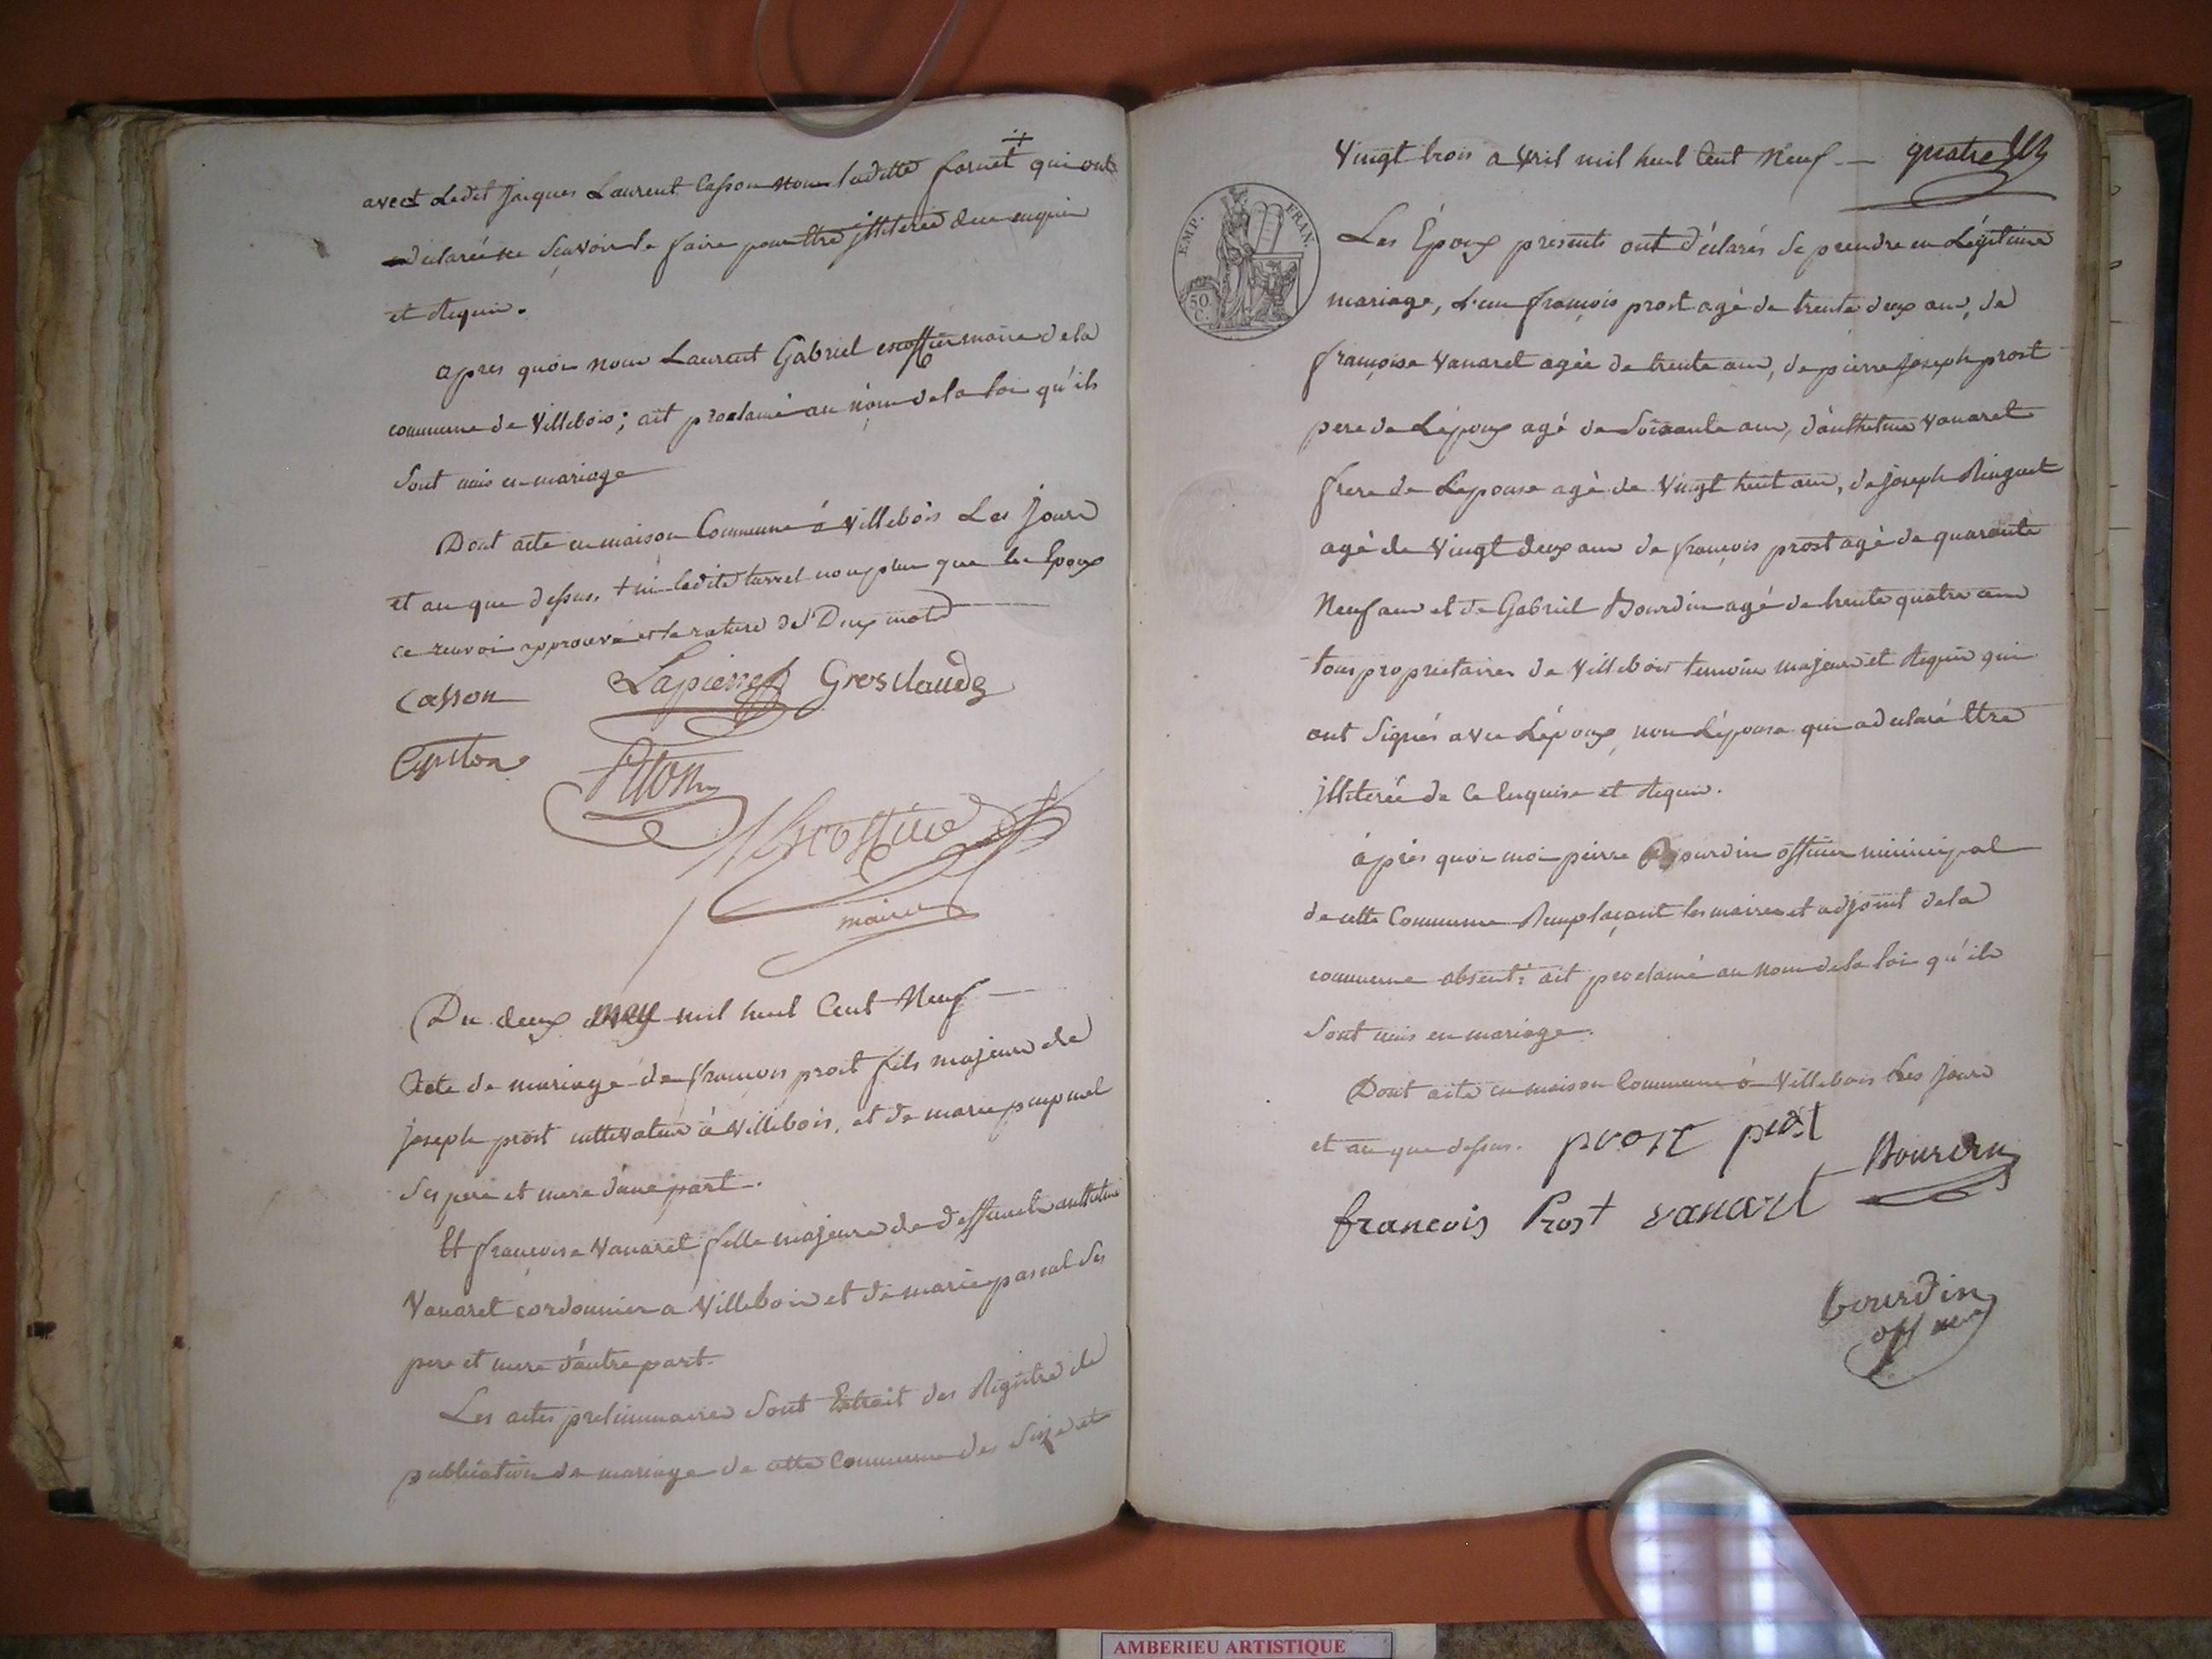 avect Ledit Jacques Laurent Casson non laditte fornet ⁺ qui ont
declarée ne scavoir le faire pour etre jlliterée de ce enquise
et Requis.
apres quoi nous Laurent Gabriel escoffier maire de la
commune de Villebois; ait proclamé au nom de la loi qu'ils
sont unis en mariage
Dont acte en maison Commune á Villebois Les jours
et an que dessus, + ni ledit tarrel non plus que les Epoux
ce renvoi approuvé et la rature de Deux mots
Casson Lapierre Grosclaude
maire
Du deux may mil huit Cent Neuf
Acte de mariage de françois prost fils majeur de
joseph prost cultivateur à Villebois, et de marie
ses pere et mere d'une part.
Et françoise Vanaret fille majeure de deffunct anthelme
Vanaret cordonnier a Villebois et de marie pascal ses
pere et mere d'autre part.
Les actes preliminaires sont Extrait des Registre de
publication de mariage de cette Commune des Seize et
Vingt trois avril mil huit Cent Neuf
EMP. FRAN.
50. C.
Les Époux presents ont déclarés se prendre en Légitime
mariage, L'un françois prost agé de trente deux ans, la
françoise Vanaret agée de trente ans, de pierre joseph prost
pere de L'époux agé de Soixante ans, d'anthelme Vanaret
frere de L'epouse agé de Vingt huit ans, de joseph Ringuet
agé de Vingt deux ans de françois prost agé de quarante
Neuf ans et de Gabriel Bourdin agé de trente quatre ans
tous proprietaires de Villebois temoins majeurs et Requis qui
ont Signés avec L'époux, non L'épouse qui a declaré Etre
jlliterée de ce Enquise et Requis.
áprès quoi moi pierre Bourdin officier municipal
de cette Commune Remplaçant les maires et adjoint de la
commune absent: ait proclamé au nom de la loi qu'ils
sont unis en mariage.
Dont acte en maison Commune á Villebois Les jours
et an que dessus. prost prost
Bourdin
francois Prost vanaret
bourdin
off mu
AMBERIEU ARTISTIQUE